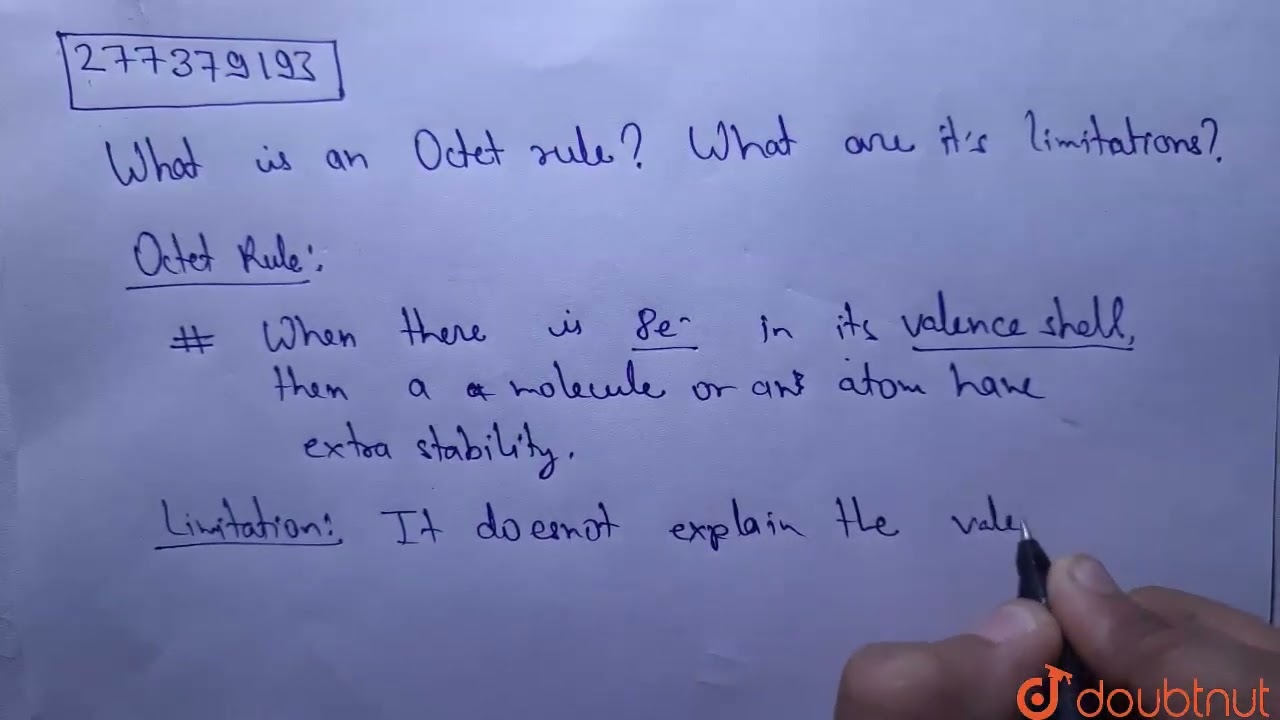 277379193
What is an Octet rule? What are it's limitations?
Octet Rule:
# When there is 8e⁻ in its valence shell,
then a molecule or an atom have
extra stability.
Limitation: It doesnot explain the vale
doubtnut